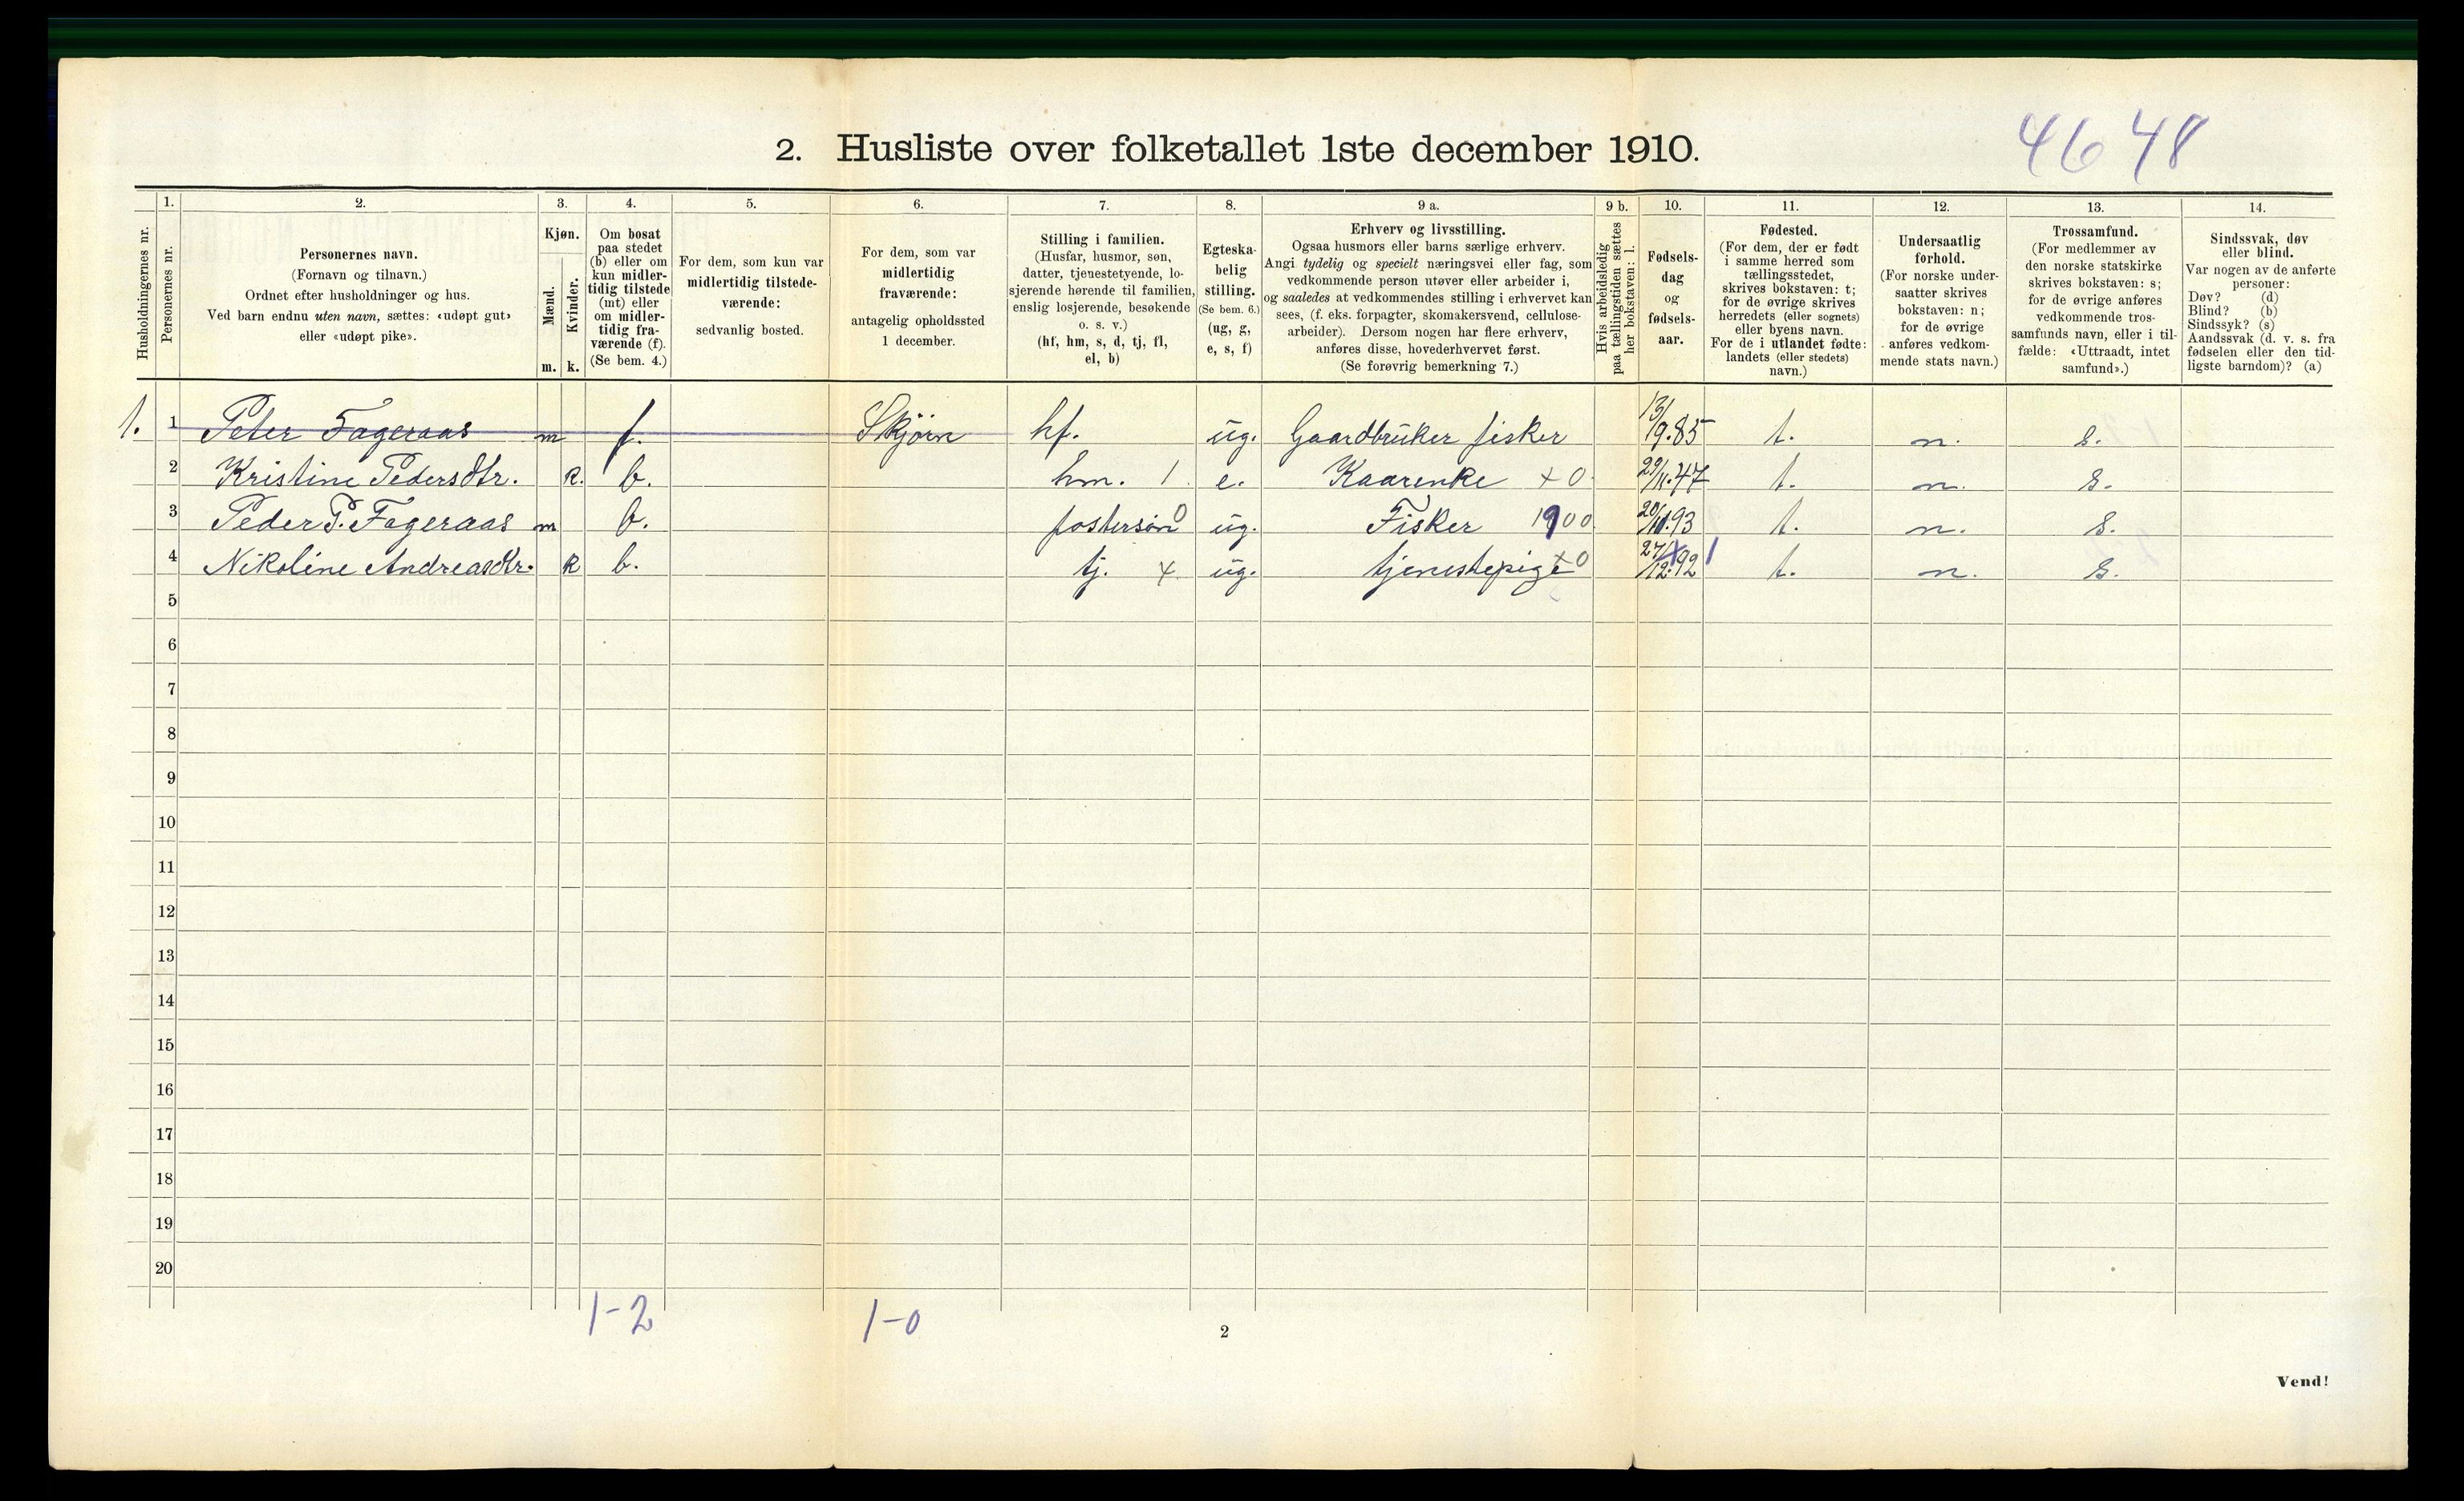 4648
2. Husliste over folketallet 1ste december 1910.
Husholdningernes nr.
1.
Personernes nr.
2.
Personernes navn.
(Fornavn og tilnavn.)
Ordnet efter husholdninger og hus.
Ved barn endnu uten navn, sættes: «udøpt gut»
eller «udøpt pike».
3.
Kjøn.
Mænd.
Kvinder.
m. k.
4.
Om bosat
paa stedet
(b) eller om
kun midler-
tidig tilstede
(mt) eller
om midler-
tidig fra-
værende (f).
(Se bem. 4.)
5.
For dem, som kun var
midlertidig tilstede-
værende:
sedvanlig bosted.
6.
For dem, som var
midlertidig
fraværende:
antagelig opholdssted
1 december.
7.
Stilling i familien.
(Husfar, husmor, søn,
datter, tjenestetyende, lo-
sjerende hørende til familien,
enslig losjerende, besøkende
o. s. v.)
(hf, hm, s, d, tj, fl,
el, b)
8.
Egteska-
belig
stilling.
(Se bem. 6.)
(ug, g,
e, s, f)
9 a.
Erhverv og livsstilling.
Ogsaa husmors eller barns særlige erhverv.
Angi tydelig og specielt næringsvei eller fag, som
vedkommende person utøver eller arbeider i,
og saaledes at vedkommendes stilling i erhvervet kan
sees, (f. eks. forpagter, skomakersvend, cellulose-
arbeider). Dersom nogen har flere erhverv,
anføres disse, hovederhvervet først.
(Se forøvrig bemerkning 7.)
9 b.
Hvis arbeidsledig
paa tællingstiden sættes
her bokstaven: l.
10.
Fødsels-
dag
og
fødsels-
aar.
11.
Fødested.
(For dem, der er født
i samme herred som
tællingsstedet,
skrives bokstaven: t;
for de øvrige skrives
herredets (eller sognets)
eller byens navn.
For de i utlandet fødte:
landets (eller stedets)
navn.)
12.
Undersaatlig
forhold.
(For norske under-
saatter skrives
bokstaven: n;
for de øvrige
anføres vedkom-
mende stats navn.)
13.
Trossamfund.
(For medlemmer av
den norske statskirke
skrives bokstaven: s;
for de øvrige anføres
vedkommende tros-
samfunds navn, eller i til-
fælde: «Uttraadt, intet
samfund».)
14.
Sindssvak, døv
eller blind.
Var nogen av de anførte
personer:
Døv? (d)
Blind? (b)
Sindssyk? (s)
Aandssvak (d. v. s. fra
fødselen eller den tid-
ligste barndom)? (a)
1. 1 Peter Fageraas m f. Skjørn hf. ug. Gaardbruker fisker 13/9.85 t. n. s.
2 Kristine Pedersdtr. k. b. hm. 1 e. Kaarenke + 0 29/11.47 t. n. s.
3 Peder P. Fageraas m b. fostersøn 0 ug. Fisker 1900 t. n. s.
4 Nikoline Andreasdtr. k b. tj. x ug. tjenestepige x0 27/12.92 1 t. n. s.
5
6
7
8
9
10
11
12
13
14
15
16
17
18
19
20
1-2 1-0
2
Vend!